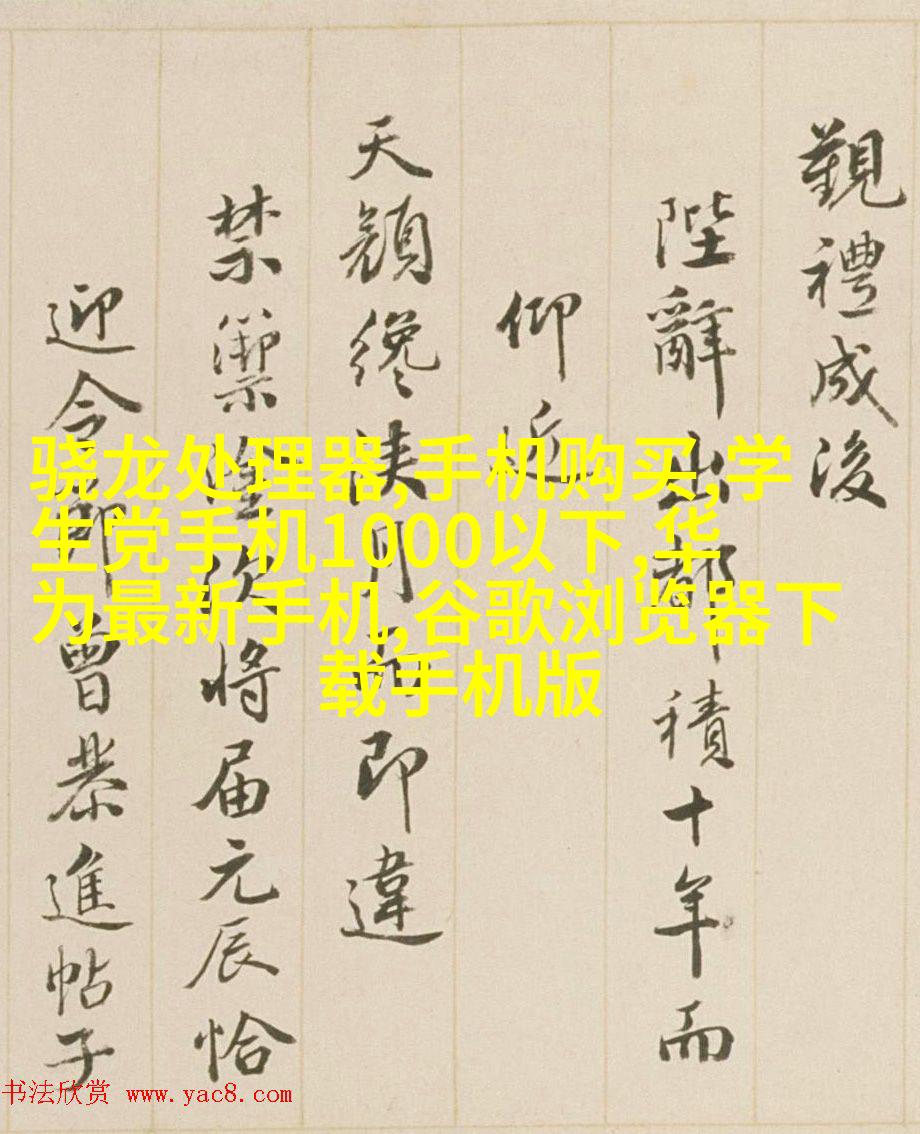 覲禮成後
陛辭出都積十年而
仰近
天顏纔浹月而即違
禁籞塗次將届元辰恰
迎令節曾恭進帖子
骁龙处理器,手机购买,学
生党手机1000以下,华
为最新手机,谷歌浏览器下
载手机版
书法欣赏 www.yac8.com